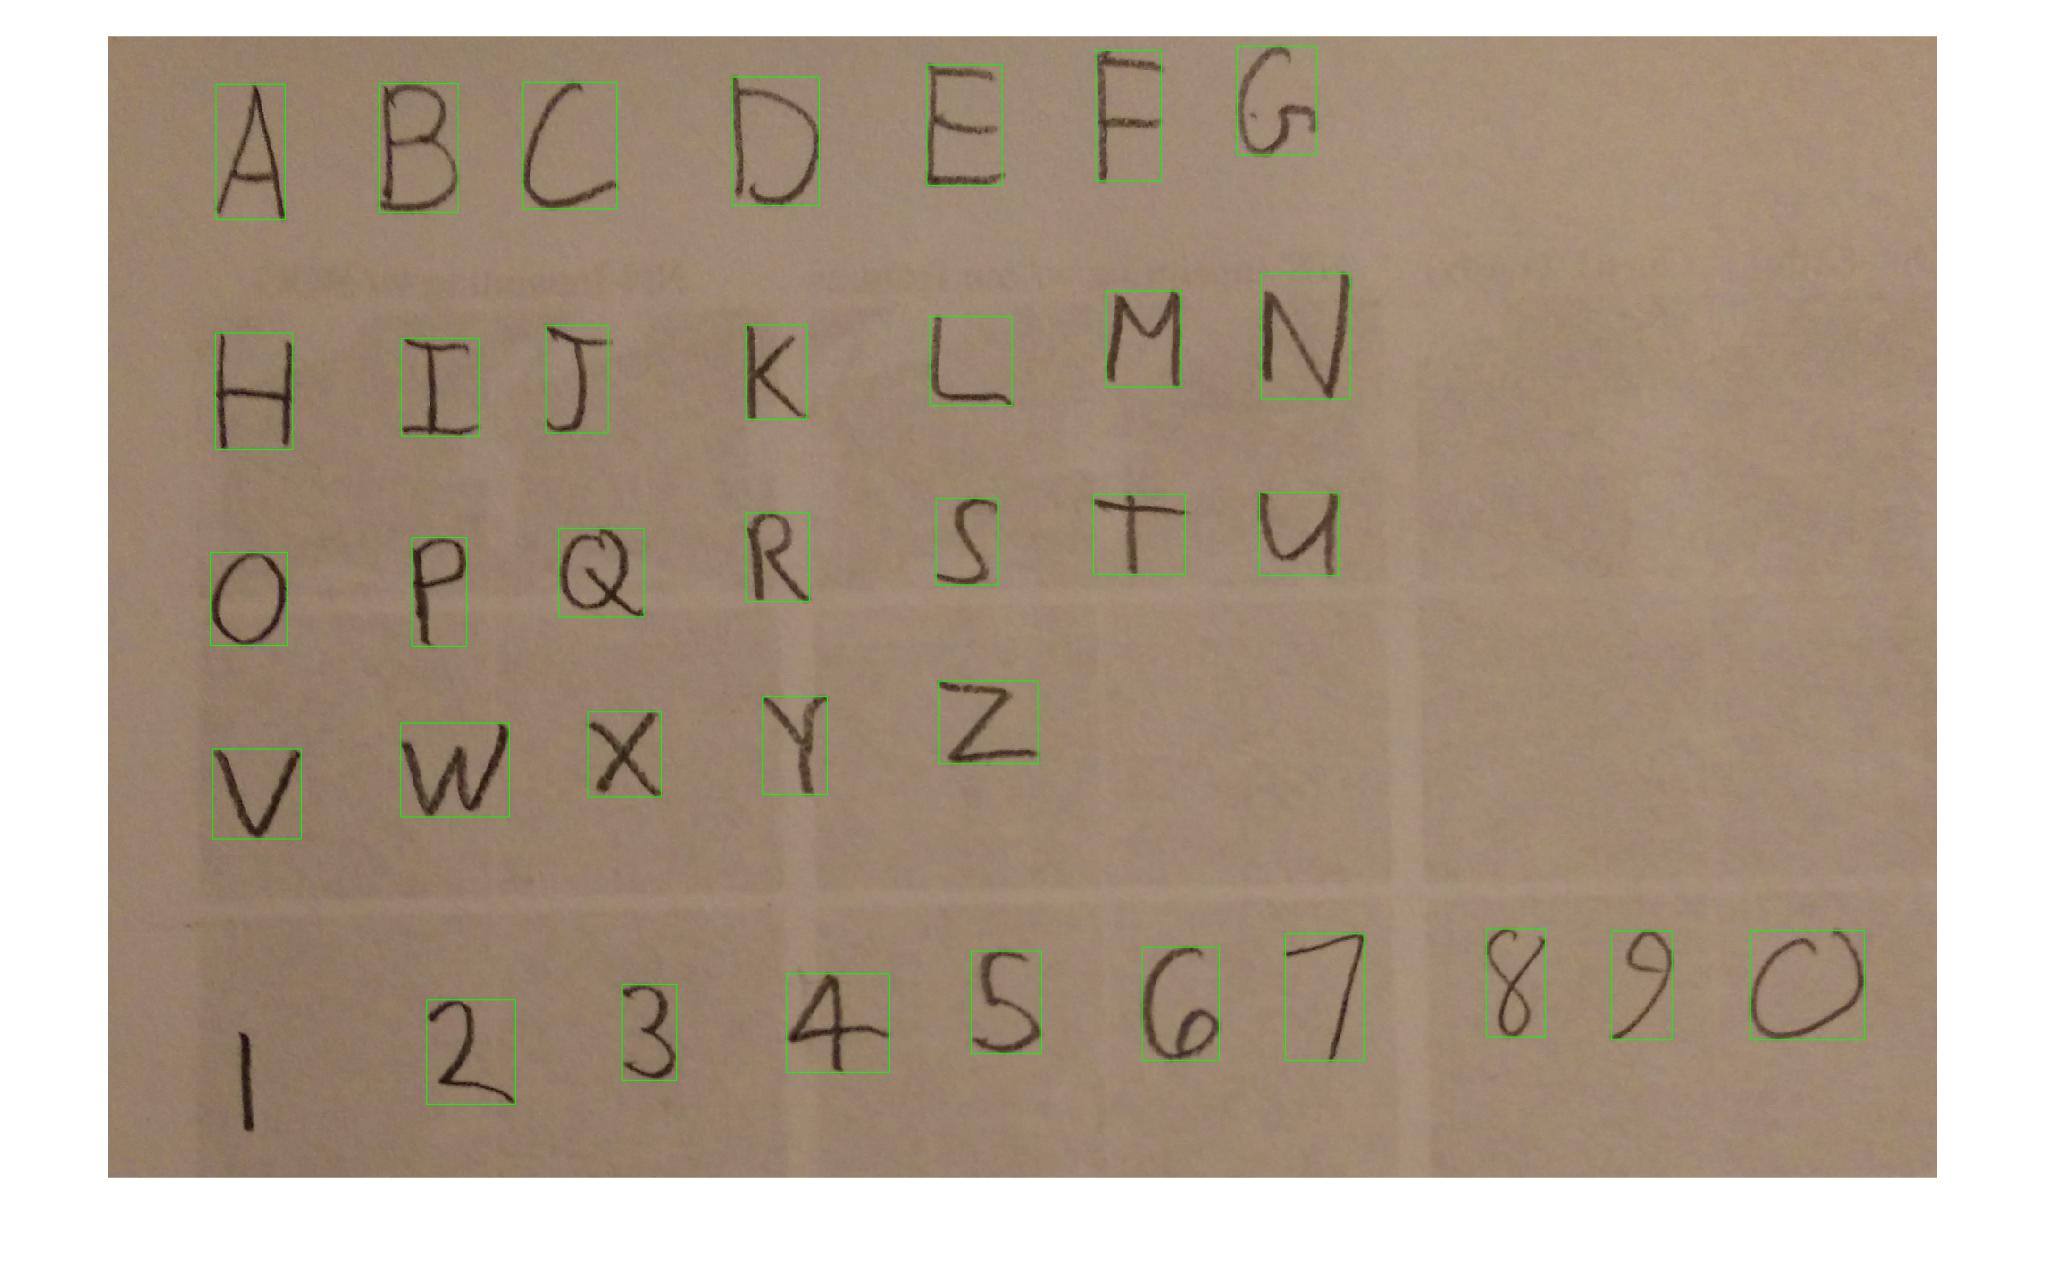 A B C D E F G
H I J K L M N
O P Q R S T U
V W X Y Z
1 2 3 4 5 6 7 8 9 0